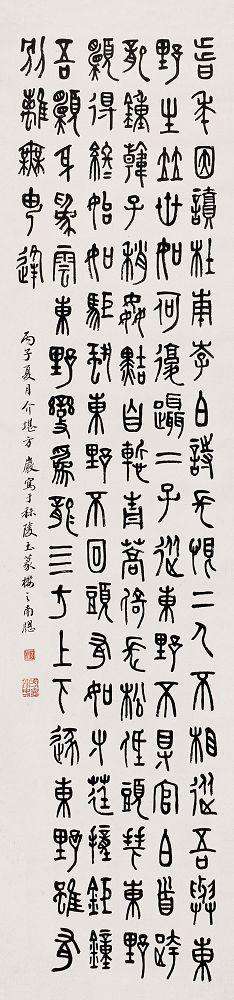 昔年因讀杜甫李白詩長恨二人不相從吾與東
野生竝世如何復躡二子從東野不得官白首誇
龍鐘韓子稍姦黠自慙青蒿倚長松低頭拜東野
願得終始如駏蛩東野不回頭有如寸莛撞鉅鐘
吾願身爲雲東野變爲龍四方上下逐東野雖有
別離無由逢
丙子夏月介堪方巖寫于秣陵玉篆樓之南牕